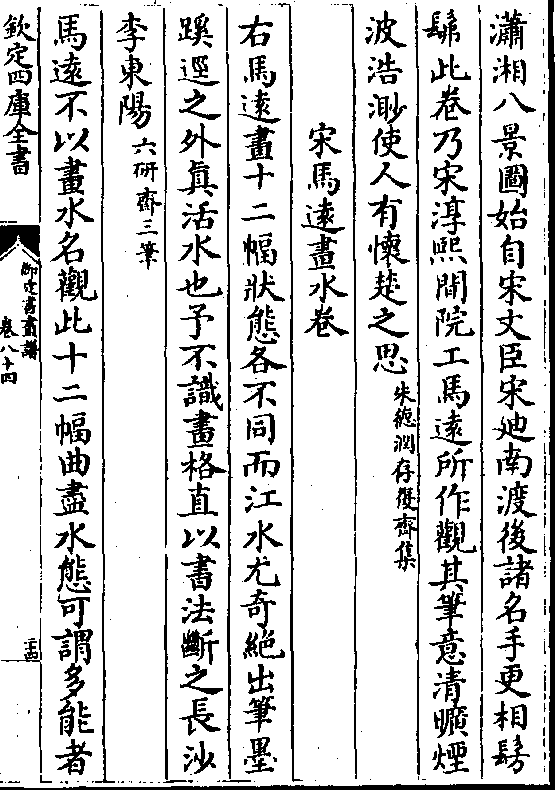 瀟湘八景圖始自宋文臣宋廸南渡後諸名手更相髣
髴此卷乃宋淳熙間院工馬遠所作觀其筆意清曠煙
波浩渺使人有懷楚之思朱德潤存復齋集
宋馬遠畫水卷
右馬遠畫十二幅狀態各不同而江水尤奇絶出筆墨
蹊逕之外真活水也予不識畫格直以書法斷之長沙
李東陽六研齋三筆
馬遠不以畫水名觀此十二幅曲盡水態可謂多能者
欽定四庫全書
御定書畫譜
卷八十四
二十四